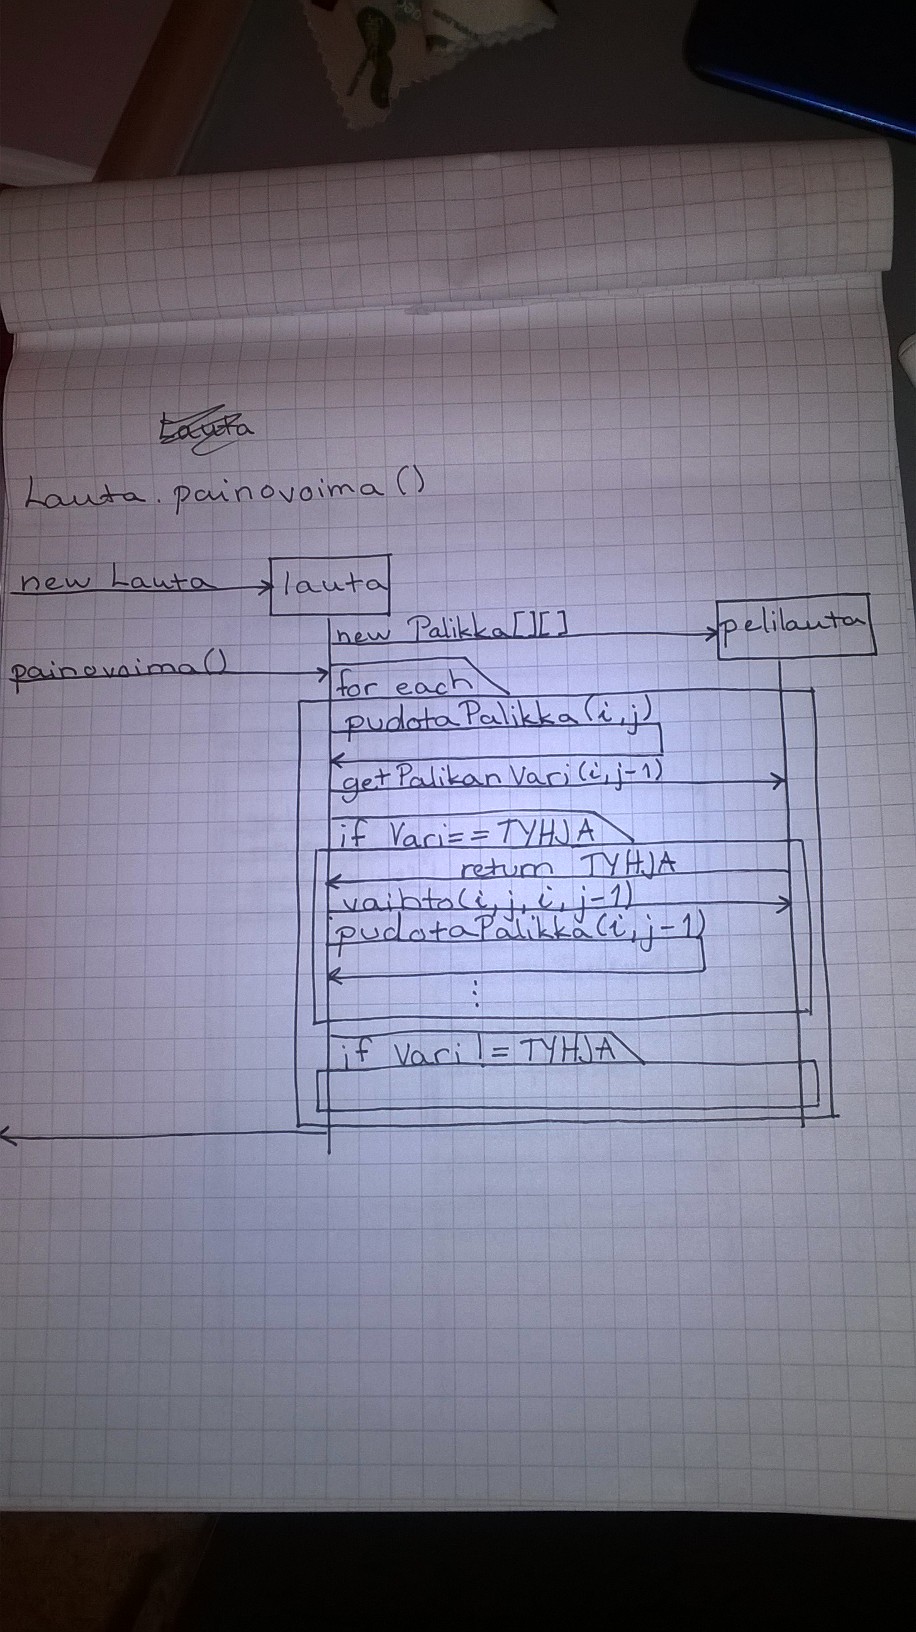 Lauta
Lauta.painovoima()
new Lauta
lauta
new Palikka[][]
pelilauta
painovoima()
for each
pudotaPalikka(i,j)
getPalikanVari(i,j-1)
if Vari==TYHJA
return TYHJA
vaihto(i,j,i,j-1)
pudotaPalikka(i,j-1)
⋮
if Vari !=TYHJA